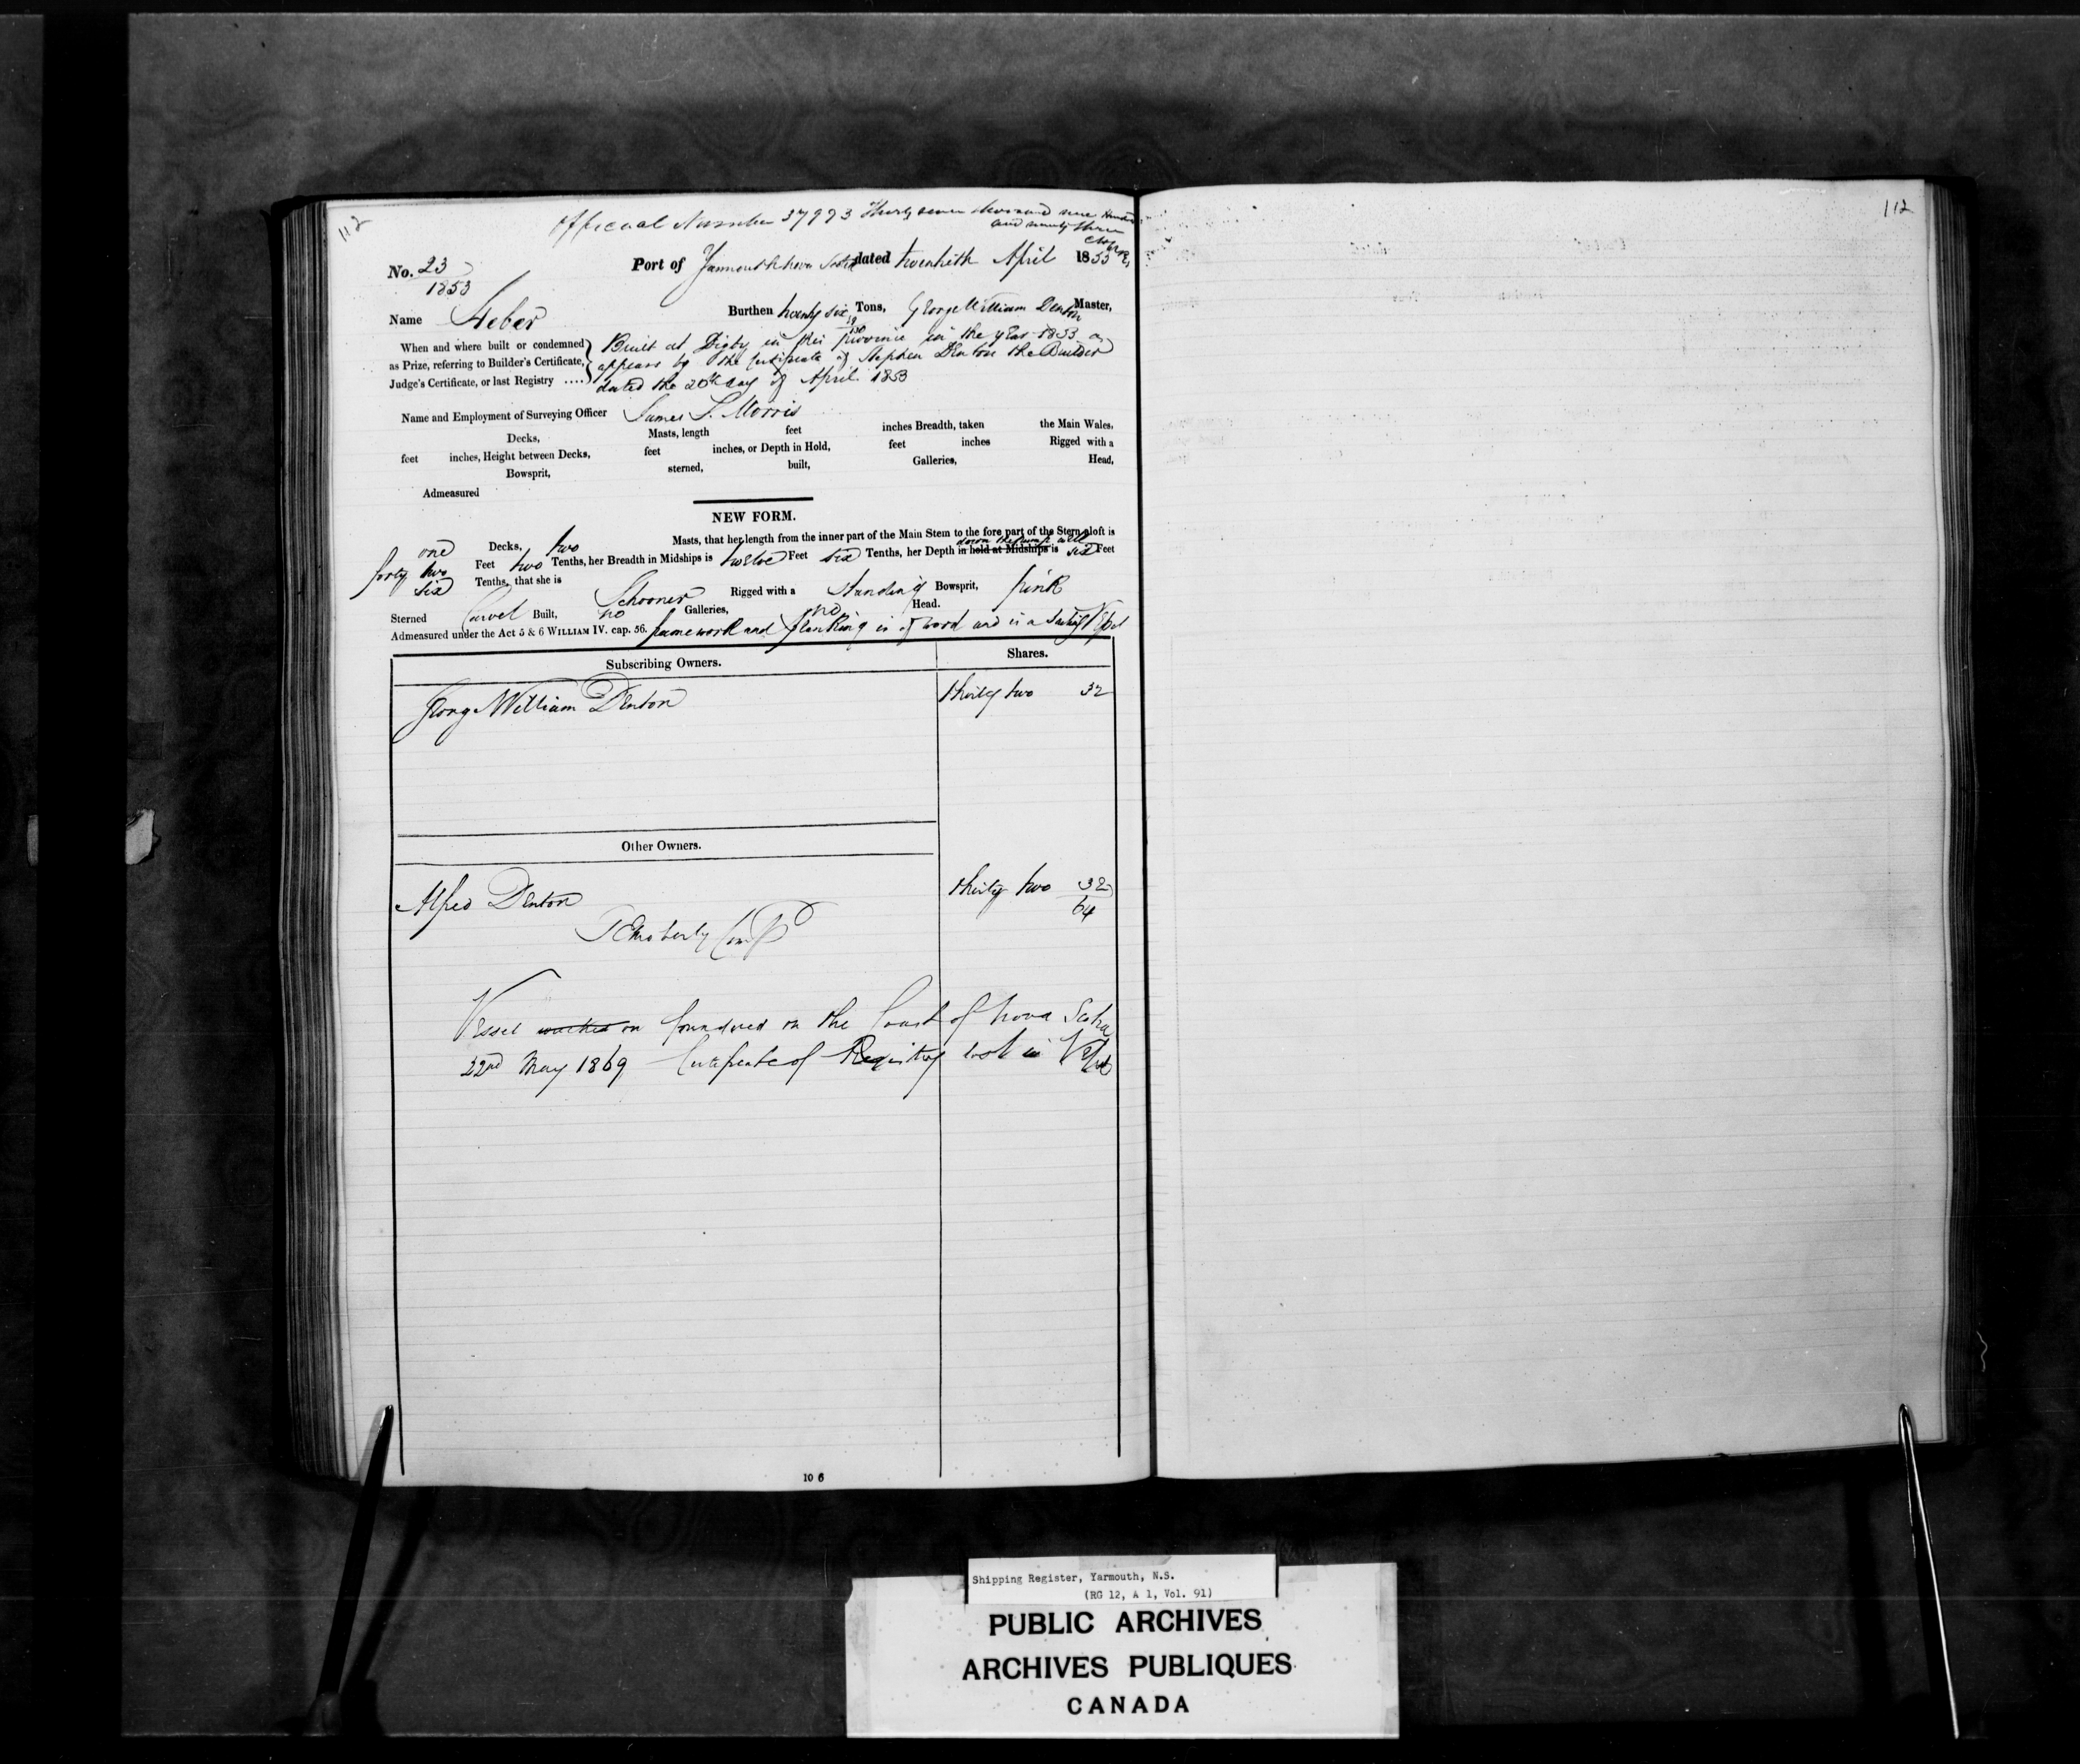 112
Official Number 37993 Thirty seven thousand nine hundred
and ninety three
No. 23
1853
Port of Yarmouth Nova Scotia dated twentieth April 1853
Name Heber
Burthen twenty six Tons, George William Denton Master,
When and where built or condemned
as Prize, referring to Builder's Certificate,
Judge's Certificate, or last Registry ....
Built at Digby in this Province in the year 1853 as
appears by the Certificate of Stephen Denton the Builder
dated the 20th day of April 1853
Name and Employment of Surveying Officer James S. Morris
Decks, Masts, length feet inches Breadth, taken the Main Wales,
feet inches, Height between Decks, feet inches, or Depth in Hold, feet inches Rigged with a
Bowsprit, sterned, built, Galleries, Head,
Admeasured
NEW FORM.
one Decks, two Masts, that her length from the inner part of the Main Stem to the fore part of the Stern aloft is
down the pump well
forty two Feet two Tenths, her Breadth in Midships is twelve Feet six Tenths, her Depth in hold at Midships is six Feet
six Tenths, that she is Schooner Rigged with a standing Bowsprit, pink
Sterned Carvel Built, no Galleries, no Head.
Admeasured under the Act 5 & 6 WILLIAM IV. cap. 56. framework and planking is of wood and is a Sailing Vessel
Subscribing Owners. Shares.
George William Denton thirty two 32
Other Owners.
Alfred Denton thirty two 32
64
Vessel on foundered on the Coast of Nova Scotia
22nd May 1869 Certificate of Registry lost in Vessel
10 6
112
Shipping Register, Yarmouth, N.S.
(RG 12, A 1, Vol. 91)
PUBLIC ARCHIVES
ARCHIVES PUBLIQUES
CANADA